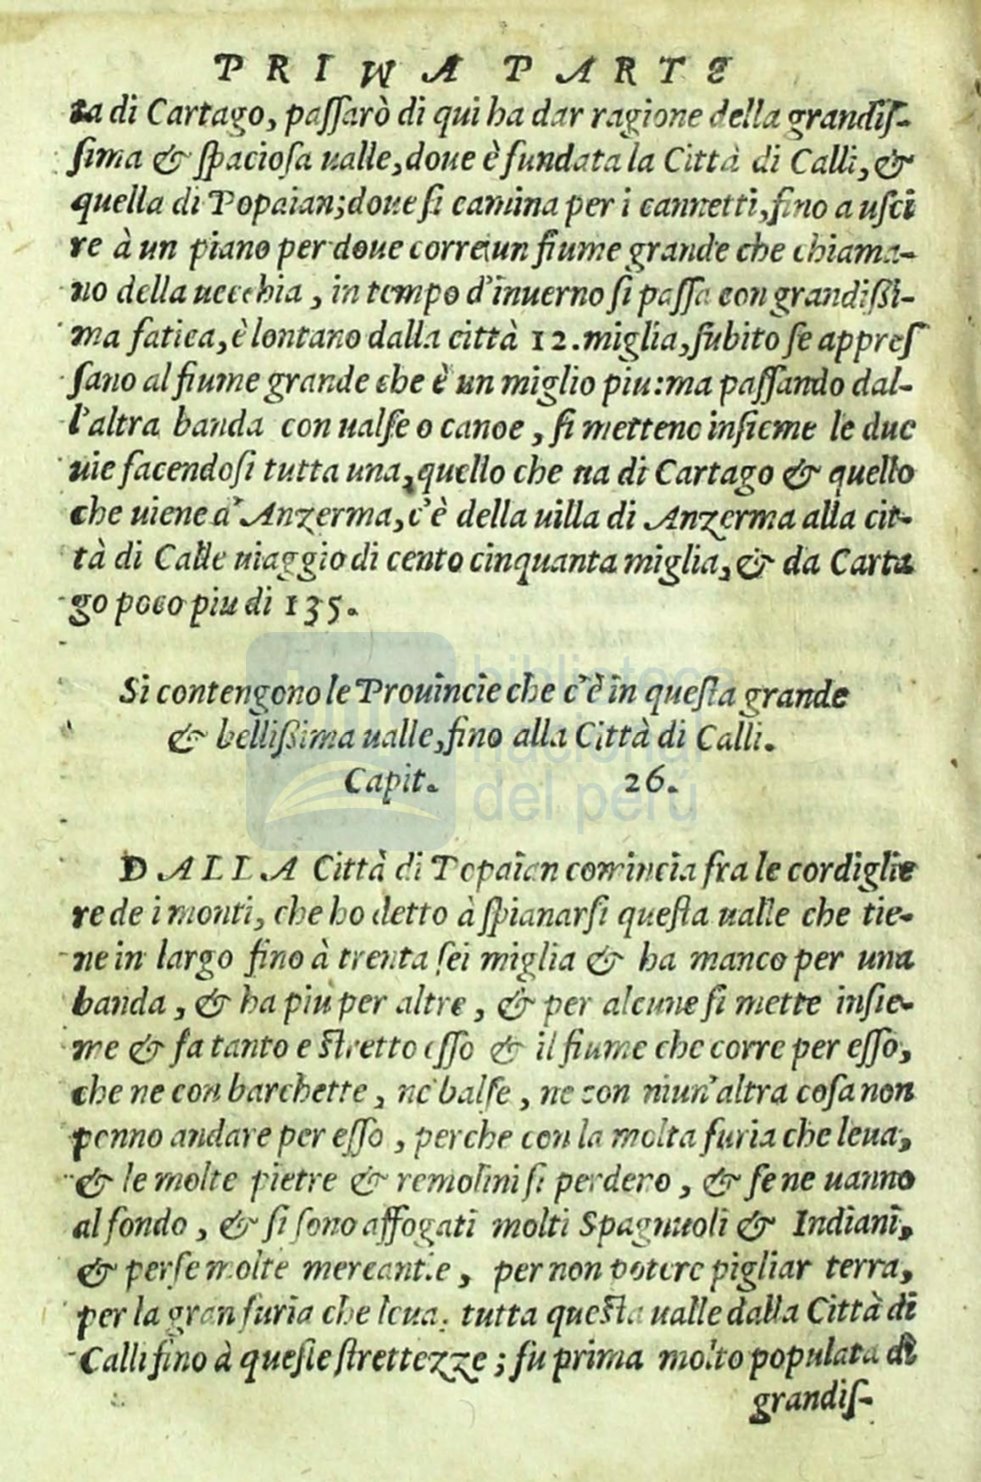 PRIMA PARTE
ta di Cartago, passarò di qui ha dar ragione della grandis-
sima & spaciosa ualle, doue è fundata la Città di Calli, &
quella di Popaian; doue si camina per i cannetti, fino a usci
re à un piano per doue corre un fiume grande che chiama-
no della uecchia, in tempo d'inuerno si passa con grandissi-
ma fatica, è lontano dalla città 12. miglia, subito se appres
sano al fiume grande che è un miglio piu: ma passando dal-
l'altra banda con ualse o canoe, si metteno insieme le due
uie facendosi tutta una, quello che ua di Cartago & quello
che uiene d'Anzerma, c'è della uilla di Anzerma alla cit-
tà di Calle uiaggio di cento cinquanta miglia, & da Carta
go poco piu di 135.
Si contengono le Prouincie che c'è in questa grande
& bellissima ualle, fino alla Città di Calli.
Capit. 26.
biblioteca
nacional
del perú
DALLA Città di Popaian comincia fra le cordiglie
re de i monti, che ho detto à spianarsi questa ualle che tie-
ne in largo fino à trenta sei miglia & ha manco per una
banda, & ha piu per altre, & per alcune si mette insie-
me & fa tanto e stretto esso & il fiume che corre per esso,
che ne con barchette, ne balse, ne con niun'altra cosa non
ponno andare per esso, perche con la molta furia che leua,
& le molte pietre & remolini si perdero, & se ne uanno
al fondo, & si sono affogati molti Spagnuoli & Indiani,
& perse molte mercantie, per non potere pigliar terra,
per la gran furia che leua. tutta questa ualle dalla Città di
Calli fino à queste strettezze; fu prima molto populata di
grandis-